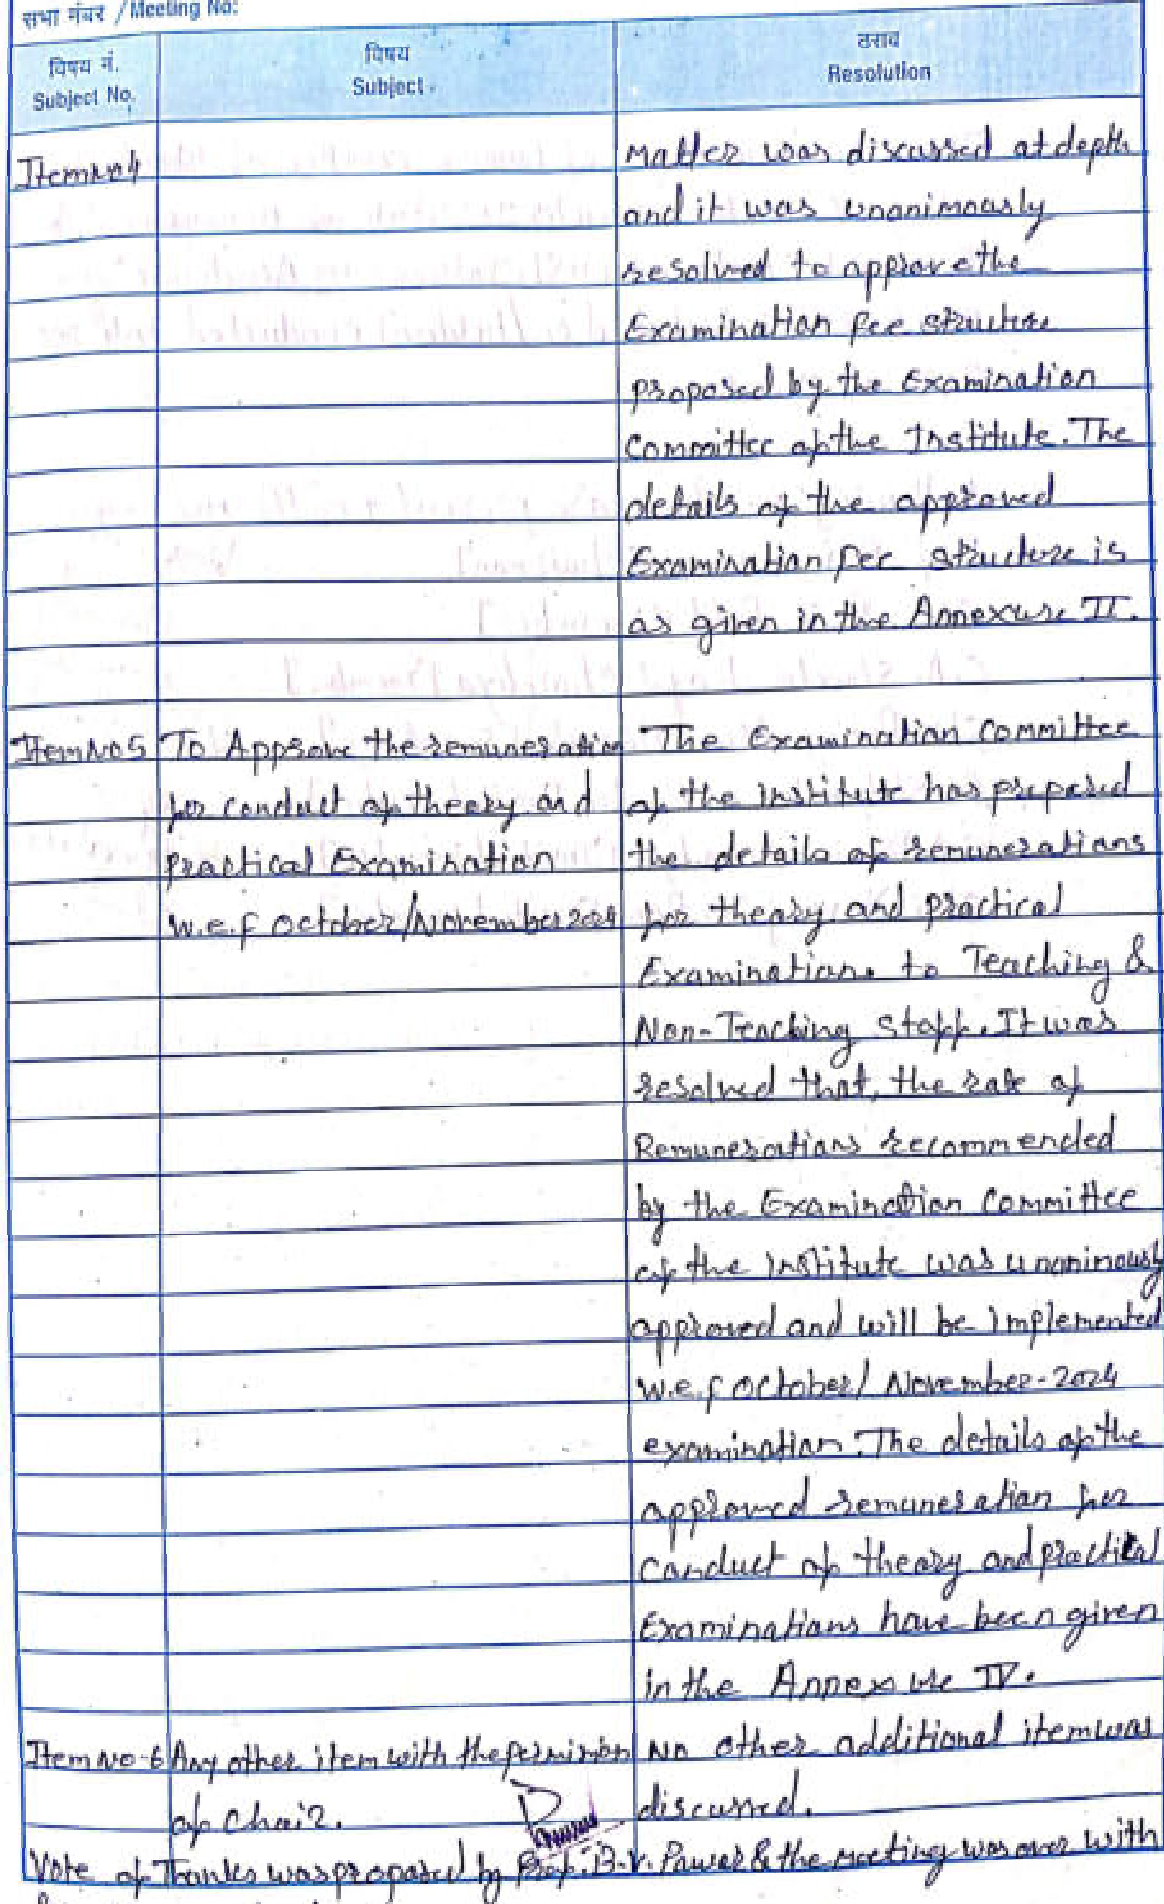 सभा नंबर / Meeting No:
विषय नं. विषय ठराव
Subject No. Subject Resolution
Item No 4 Matter was discussed at depth
and it was unonimously
resolved to approve the
Examination fee structure
proposed by the Examination
Committee of the Institute. The
details of the approved
Examination Fee structure is
as given in the Annexure II.
Item No 5 To Approve the remuneration The Examination Committee
for conduct of theory and of the institute has prepared
Practical Examination the details of remunerations
w.e.f October/November 2024 for theory and practical
Examinations to Teaching &
Non-Teaching staff. It was
resolved that, the rate of
Remunerations recommended
by the Examination Committee
of the institute was unonimously
approved and will be implemented
w.e.f October/ November-2024
examination. The details of the
approved remuneration for
conduct of theory and practical
Examinations have been given
in the Annexure IV.
Item No-6 Any other item with the permission No other additional item was
of Chair. discussed.
Vote of Thanks was proposed by Prof. B.V. Pawar & the meeting was over with